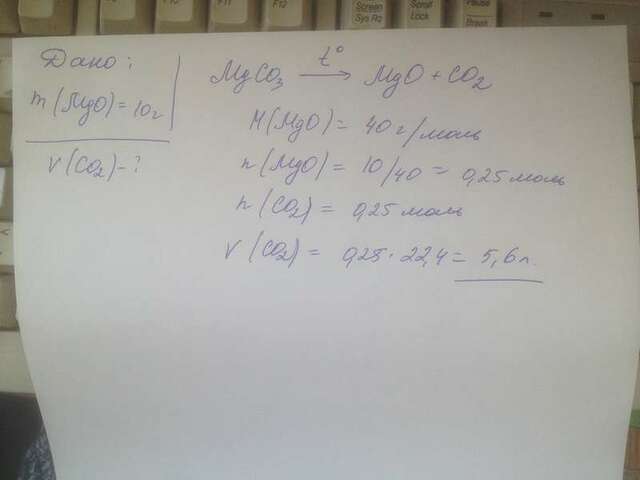 Screen
Sys Rq
Scroll
Lock
Pause
Break
Дано:
m(MgO)=10г
V(CO2)-?
t°
MgCO3 → MgO+CO2
M(MgO)= 40г/моль
n(MgO)= 10/40= 0,25моль
n(CO2)= 0,25моль
V(CO2)= 0,25·22,4= 5,6л.